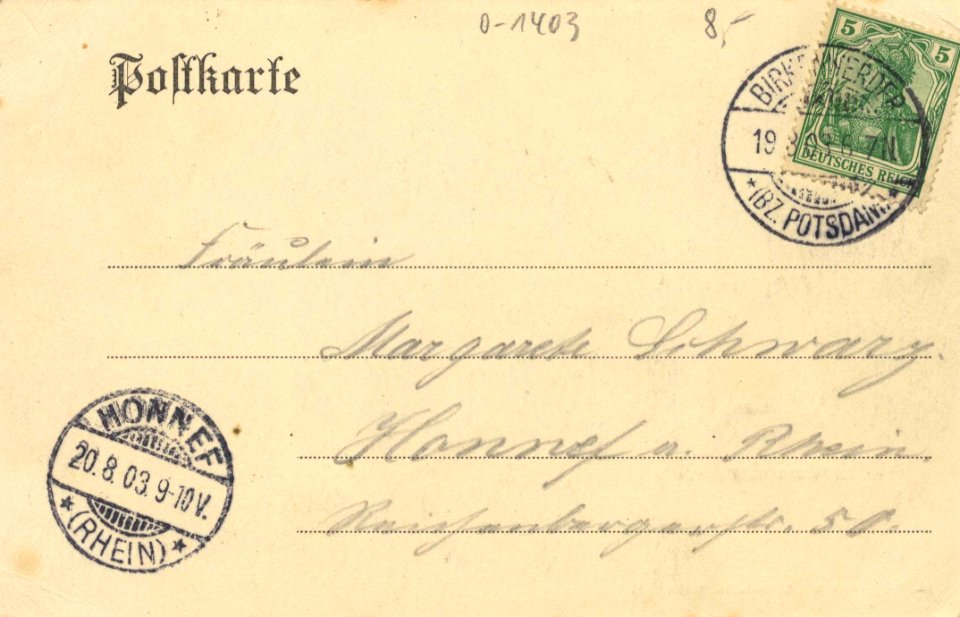 0-1403 8,-
Postkarte
5 5
DEUTSCHES REICH
BIRKENWERDER
19.8.03.6-7N.
* (BZ. POTSDAM) *
Fräulein
Margarete Schwarz.
Honnef a. Rhein.
HONNEF
20.8.03.9-10V.
* (RHEIN) *
Reichenbergerstr. 50.